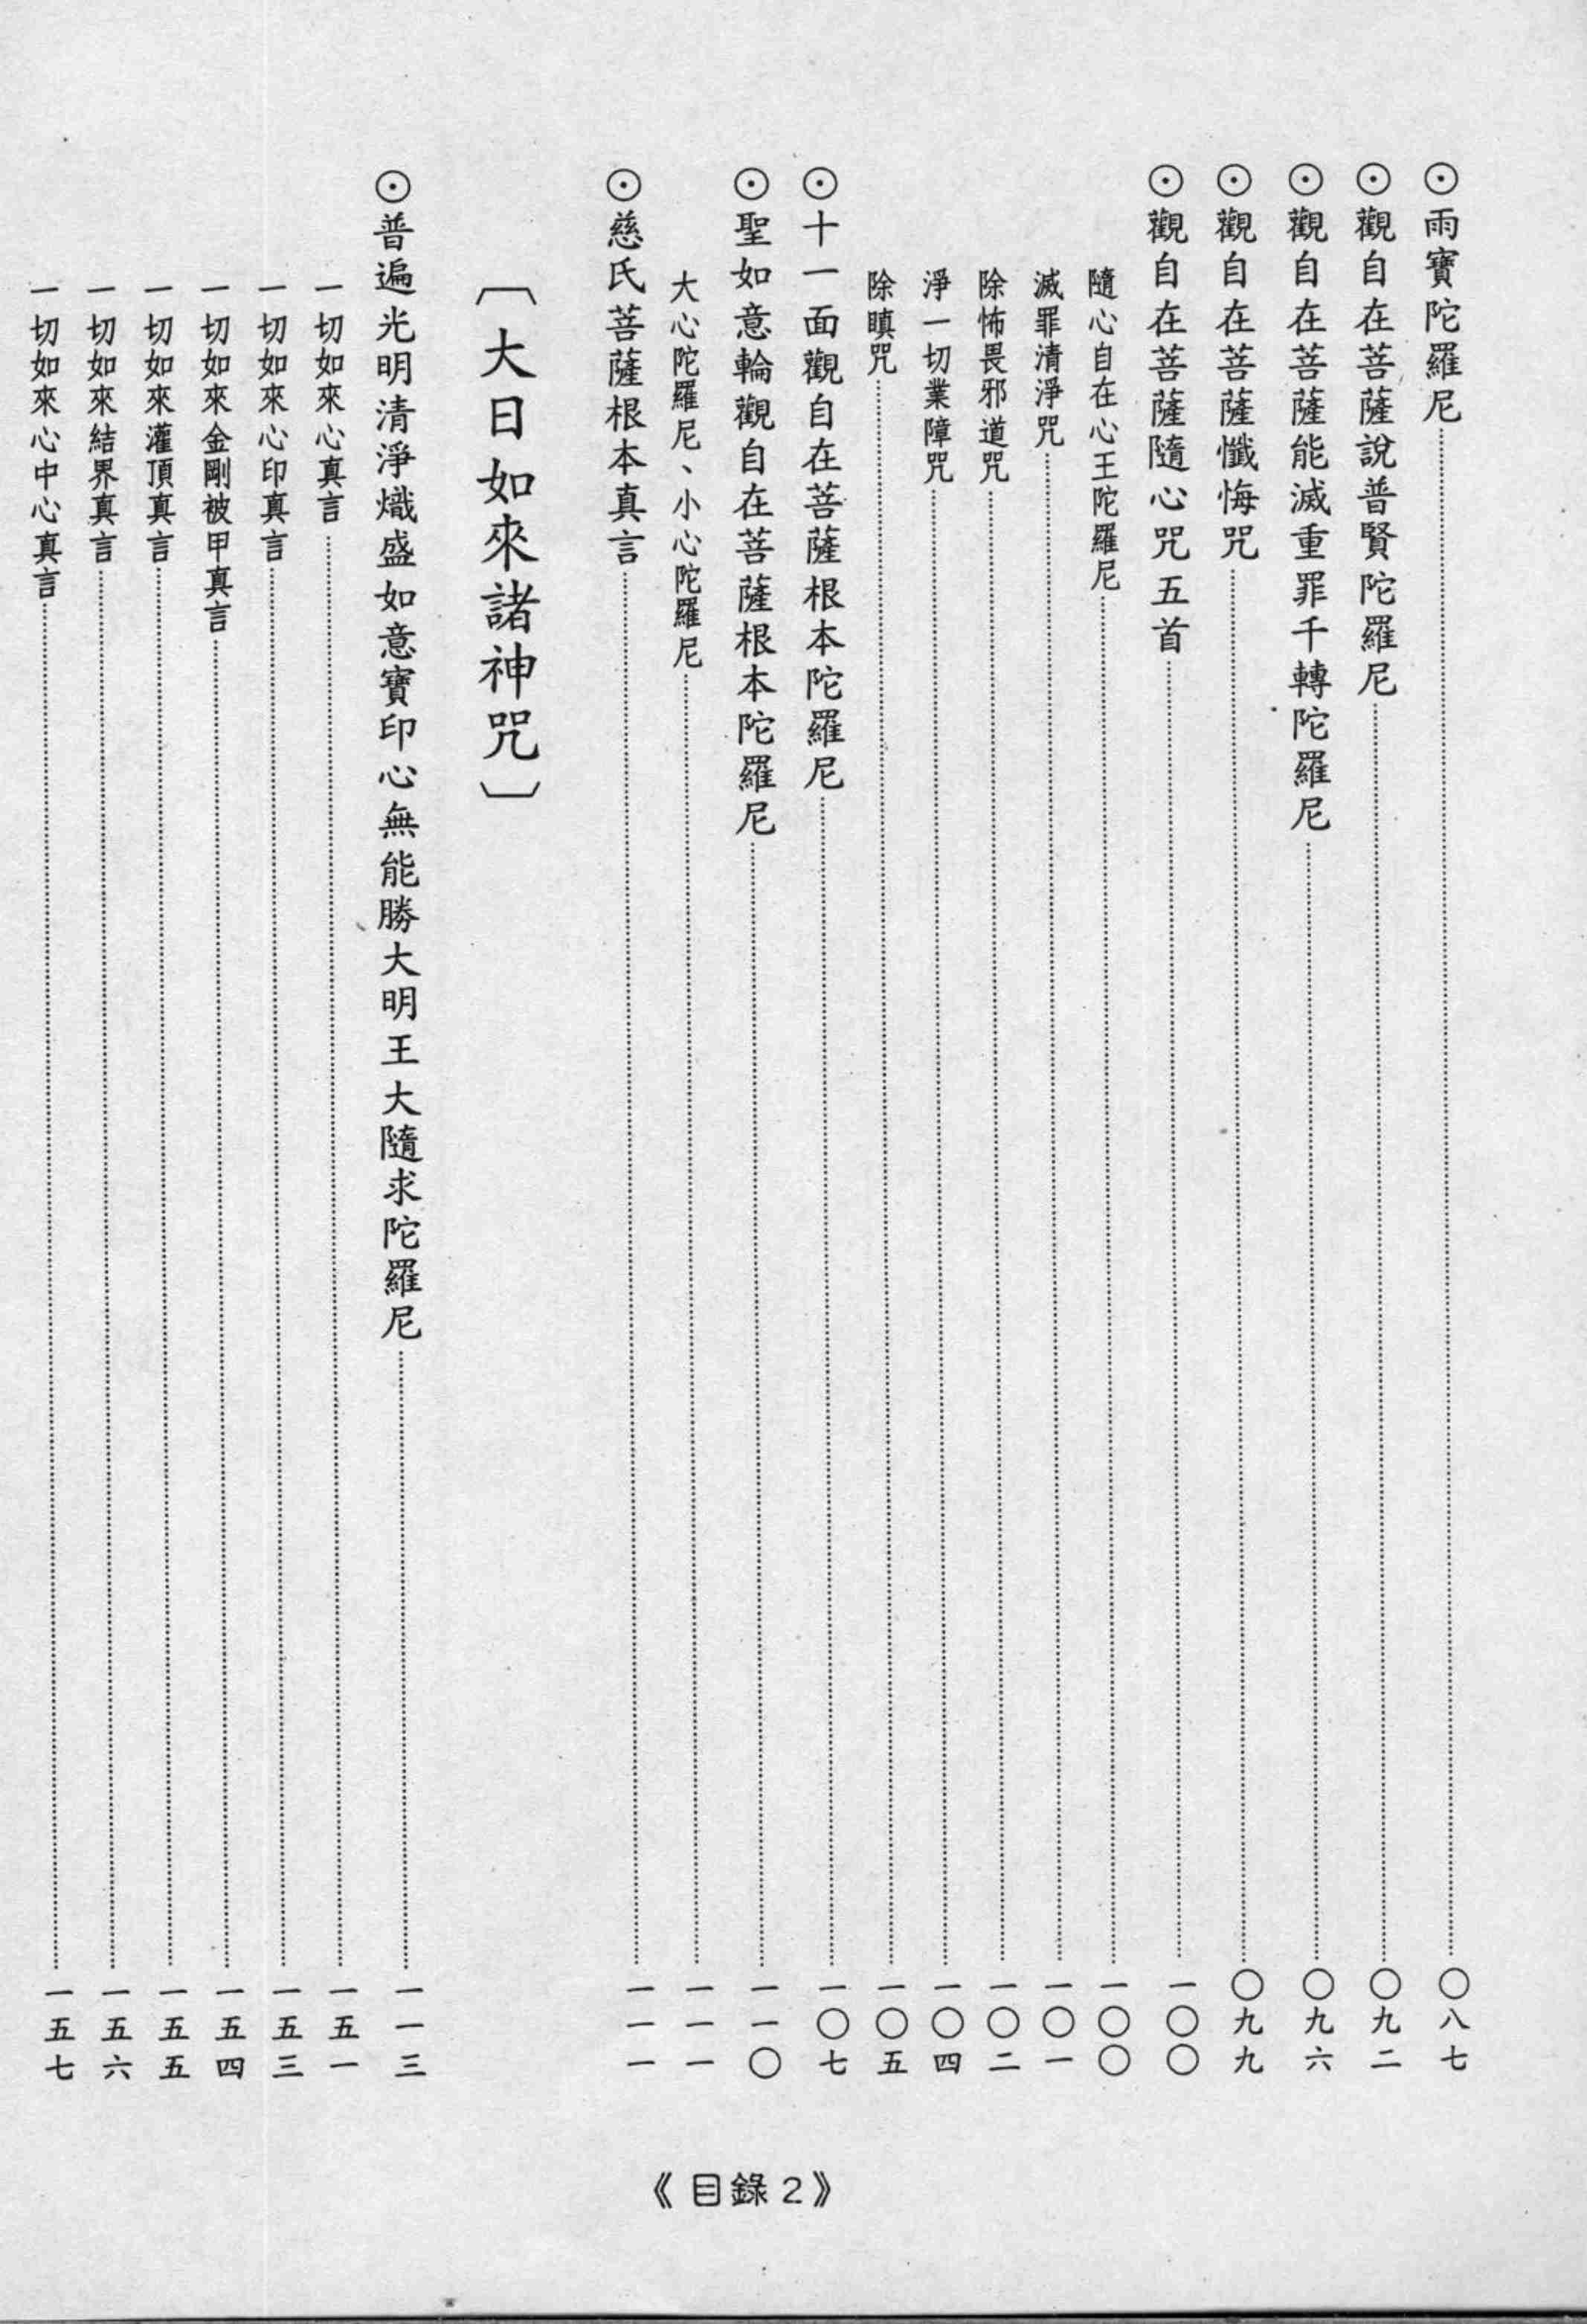 ⊙雨寶陀羅尼……〇八七
⊙觀自在菩薩說普賢陀羅尼……〇九二
⊙觀自在菩薩能滅重罪千轉陀羅尼……〇九六
⊙觀自在菩薩懺悔咒……〇九九
⊙觀自在菩薩隨心咒五首……一〇〇
隨心自在心王陀羅尼……一〇〇
滅罪清淨咒……一〇一
除怖畏邪道咒……一〇二
淨一切業障咒……一〇四
除瞋咒……一〇五
⊙十一面觀自在菩薩根本陀羅尼……一〇七
⊙聖如意輪觀自在菩薩根本陀羅尼……一一〇
大心陀羅尼、小心陀羅尼……一一一
⊙慈氏菩薩根本真言……一一一
〔大日如來諸神咒〕
⊙普遍光明清淨熾盛如意寶印心無能勝大明王大隨求陀羅尼……一一三
一切如來心真言……一五一
一切如來心印真言……一五三
一切如來金剛被甲真言……一五四
一切如來灌頂真言……一五五
一切如來結界真言……一五六
一切如來心中心真言……一五七
《目錄2》